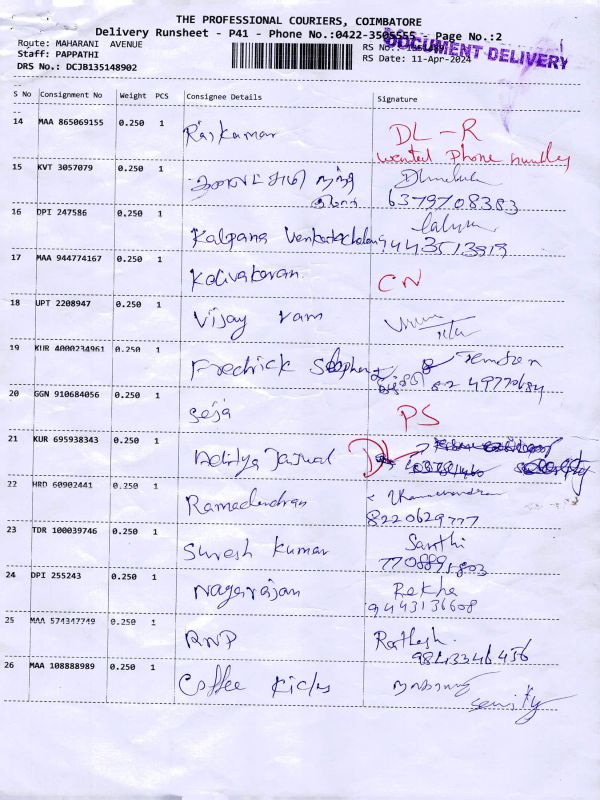 THE PROFESSIONAL COURIERS, COIMBATORE
Delivery Runsheet - P41 - Phone No.:0422-3505555 - Page No.:2
Route: MAHARANI AVENUE
Staff: PAPPATHI
DRS No.: DCJB135148902
RS No.:
RS Date: 11-Apr-2024
DOCUMENT DELIVERY
S No Consignment No Weight PCS Consignee Details Signature
14 MAA 865069155 0.250 1 Rajkumar DL - R
wanted Phone number
15 KVT 3057079 0.250 1
6379708383
16 DPI 247586 0.250 1 Kalpana Venkatachalam 9443513919
17 MAA 944774167 0.250 1 Kalivakaran CN
18 UPT 2208947 0.250 1 Vijay ram
19 KUR 4000234961 0.250 1 Fredrick Stephen
20 GGN 910684056 0.250 1 Seja PS
21 KUR 695938343 0.250 1 Aditya Jaiswal DL
22 HRD 60902441 0.250 1 Ramachandran
8220629777
23 TDR 100039746 0.250 1 Suresh Kumar Santhi
7708895803
24 DPI 255243 0.250 1 Nagarajan Rekha
9443136608
25 MAA 574347749 0.250 1 RNP Ratheesh
9843346456
26 MAA 108888989 0.250 1 Coffee Kicks